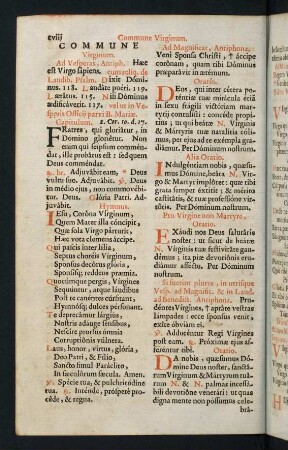 cviij
Commune Virginum.
COMMUNE
Virginum.
Ad Vesperas, Antiph. Hæc
est Virgo sapiens. cum reliq. de
Laudib. Psalm. Dixit Dominus.
118. Laudáte púeri. 119.
Lætátus. 115. Nisi Dóminus
ædificáverit. 117. vel ut in Vesperis
Officii parvi B. Mariæ.
Capitulum. 2. Cor. 10. d. 17.
FRatres, qui gloriátur, in
Dómino gloriétur. Non
enim qui seípsum comméndat,
ille probátus est: sed quem
Deus comméndat.
a. br. Adjuvábit eam, * Deus
vultu suo. Adjuvábit. ℣. Deus
in médio ejus, non commovébitur.
Deus. Glória Patri. Adjuvábit.
Hymnus.
IEsu, Coróna Vírginum,
Quem Mater illa cóncipit,
Quæ sola Virgo párturit;
Hæc vota clemens áccipe.
Qui pascis inter lília
Septus choréis Vírginum,
Sponsus decórus glória,
Sponsísq; reddens præmia.
Quocúmque pergis, Vírgines
Sequúntur, atque láudibus
Post te canéntes cúrsitant,
Hymnósq; dulces pérsonant.
Te deprecámur lárgius,
Nostris adáuge sénsibus,
Nescíre prorsus ómnia
Corruptiónis vúlnera.
Laus, honor, virtus, glória,
Deo Patri, & Fílio,
Sancto simul Paráclito,
In sæculórum sæcula. Amen.
℣. Spécie tua, & pulchritúdine
tua. ℟. Inténde, próspere procéde,
& regna.
Ad Magnificat, Antiphona.
Veni Sponsa Christi, † áccipe
corónam, quam tibi Dóminus
præparávit in ætérnum.
Oratio.
DEus, qui inter cétera poténtiæ
tuæ mirácula étiam
in sexu frágili victóriam martýrii
contulísti: concéde propítius;
ut, qui beátæ N. Vírginis
& Mártyris tuæ natalítia
cólimus, per ejus ad te exémpla
gradiámur. Per Dóminum
nostrum.
Alia Oratio.
INdulgéntiam nobis, quæsumus
Dómine, beáta N. Virgo
& Martyr implóret: quæ tibi
grata semper éxtitit, & mérito
castitátis, & tuæ professióne
virtútis. Per Dóminum nostrum.
Pro Virgine non Martyre,
Oratio.
EXáudi nos Deus salutáris
noster: ut sicut de beátæ
N. Vírginis tuæ festivitáte gaudémus;
ita piæ devotiónis erudiámur
afféctu. Per Dóminum
nostrum.
Si fuerint plures, in utrisque
Vesp. ad Magnific. & in Laud.
ad Benedict. Antiphona. Prudéntes
vírgines, † aptáte vestras
lámpades: ecce sponsus venit,
exíte óbviam ei.
℣. Adducéntur Regi Vírgines
post eam. ℟. Próximæ ejus
afferéntur tibi. Oratio.
DA nobis, quæsumus Dómine
Deus noster, sanctárum
Vírginum & Mártyrum tuárum
N. & N. palmas incessábili
devotióne venerári: ut quas
digna mente non póssumus celebrá-